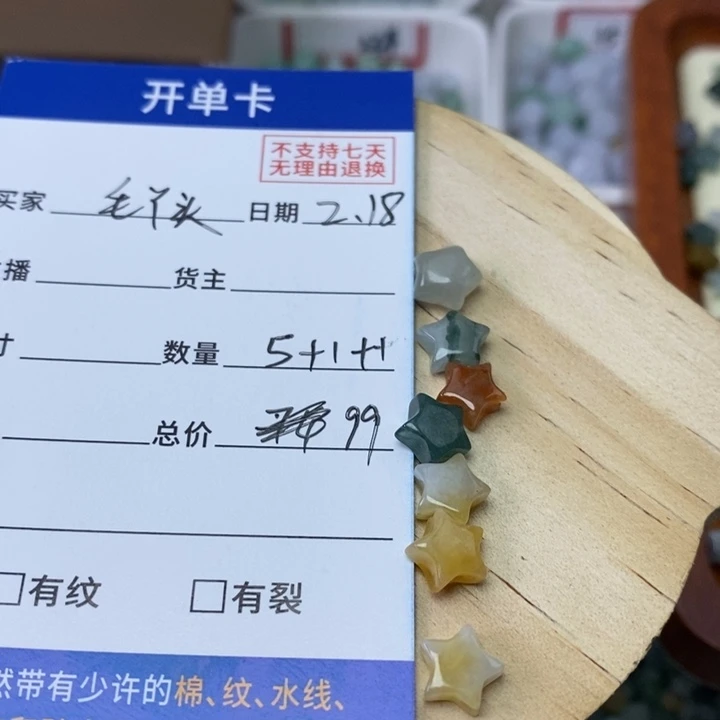 开单卡
不支持七天
无理由退换
买家 毛丫头 日期 2.18
播 货主
寸 数量 5+1+1
总价 99
有纹 有裂
然带有少许的棉、纹、水线、